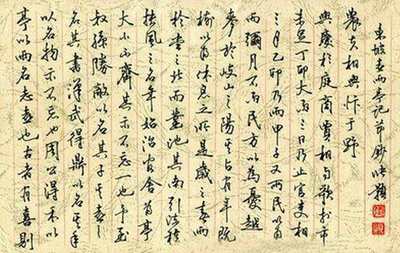 亭以雨名志喜也古者有喜則
以名物示不忘也周公得禾以
名其書漢武得鼎以名其年
叔孫勝敵以名其子其喜之
大小不齊其示不忘一也予至
扶風之明年始治官舍為亭
於堂之北而鑿池其南引流種
樹以為休息之所是歲之春雨
麥於岐山之陽其占有年既
而彌月不雨民方以為憂越
三月乙卯乃雨甲子又雨民以為
未足丁卯大雨三日乃止官吏相
與慶於庭商賈相與歌於市
農夫相與忭于野
東坡喜雨亭記節錄